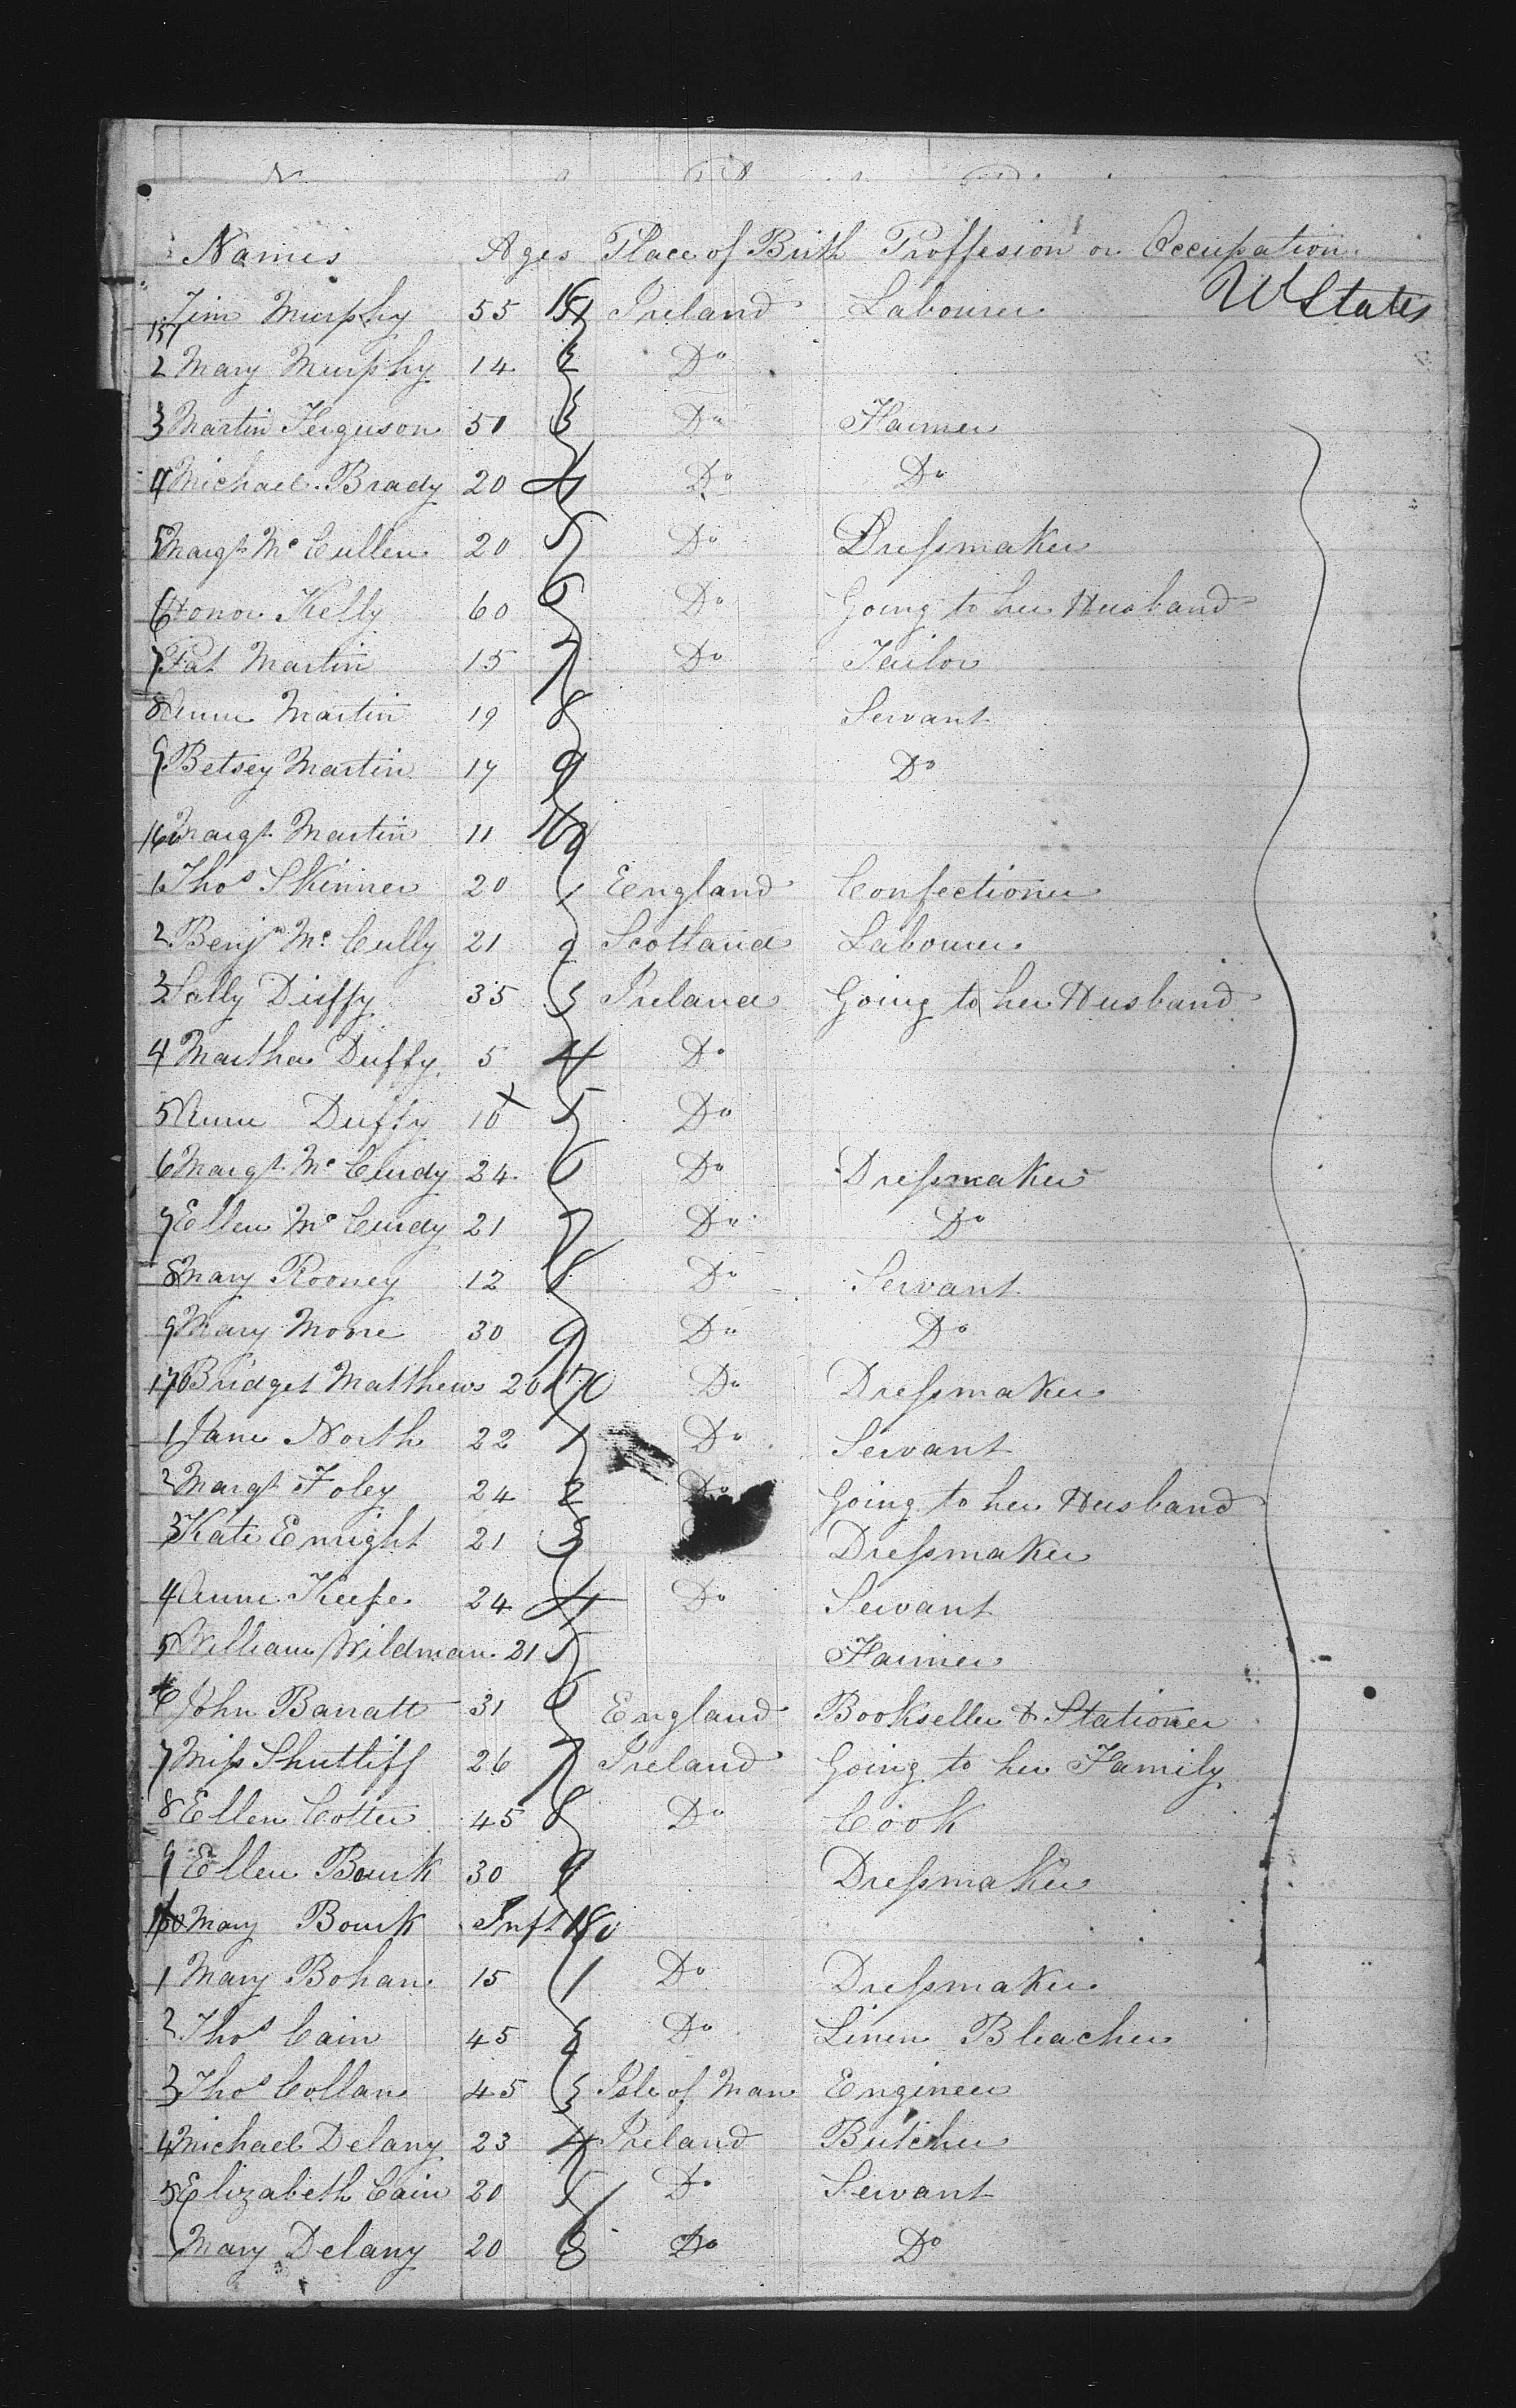 Names Ages Place of Birth Proffesion or Occupation
151 Tim Murphy 55 151 Ireland Labourer U States
2 Mary Murphy 14 2 Do
3 Martin Ferguson 50 3 Do Farmer
4 Michael Brady 20 4 Do Do
5 Margt McCullen 20 5 Do Dressmaker
6 Honor Kelly 60 6 Do Going to her Husband
7 Pat Martin 15 7 Do Tailor
8 Anne Martin 19 8 Servant
9 Betsey Martin 17 9 Do
160 Margt Martin 11 160
1 Thos Skinner 20 1 England Confectioner
2 Benjn McCully 21 2 Scotland Labourer
3 Sally Duffy 35 3 Ireland Going to her Husband
4 Martha Duffy 5 4 Do
5 Anne Duffy 10 x 5 Do
6 Margt McCurdy 24 6 Do Dressmaker
7 Ellen McCurdy 21 7 Do Do
8 Mary Rooney 12 8 Do Servant
9 Mary Moore 30 9 Do Do
170 Bridget Matthews 20 170 Do Dressmaker
1 Jane North 22 1 Do Servant
2 Margt Foley 24 2 Do Going to her Husband
3 Kate Enright 21 3 Dressmaker
4 Anne Keefe 24 4 Do Servant
5 William Wildman 21 5 Farmer
6 John Barratt 31 6 England Bookseller & Stationer
7 Miss Shutliff 26 7 Ireland Going to her Family
8 Ellen Cotter 45 8 Do Cook
9 Ellen Bourk 30 9 Dressmaker
180 Mary Bourk Inft 180
1 Mary Bohan 15 1 Do Dressmaker
2 Thos Cain 45 2 Do Linen Bleacher
3 Thos Collan 45 3 Isle of Man Engineer
4 Michael Delany 23 4 Ireland Butcher
5 Elizabeth Cain 20 5 Do Servant
6 Mary Delany 20 6 Do Do